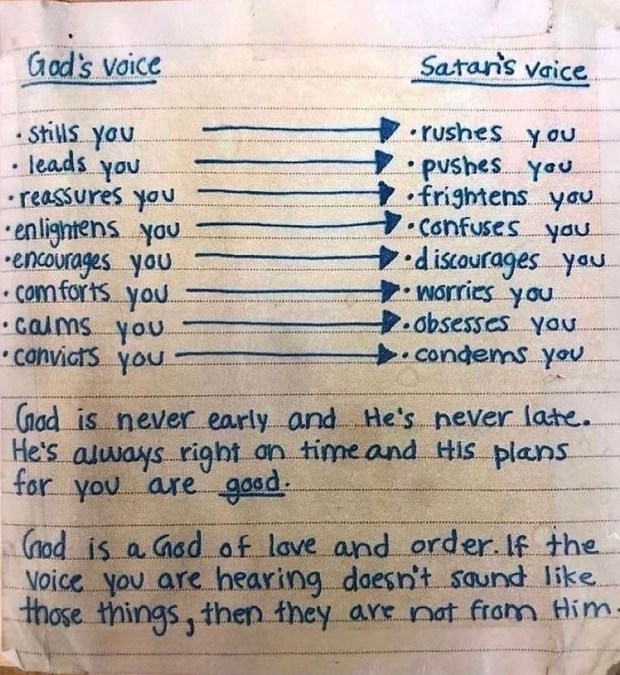 God's voice Satan's voice
• stills you • rushes you
• leads you • pushes you
• reassures you • frightens you
• enlightens you • confuses you
• encourages you • discourages you
• comforts you • worries you
• calms you • obsesses you
• convicts you • condems you
God is never early and He's never late.
He's always right on time and His plans
for you are good.
God is a God of love and order. If the
voice you are hearing doesn't sound like
those things, then they are not from Him.